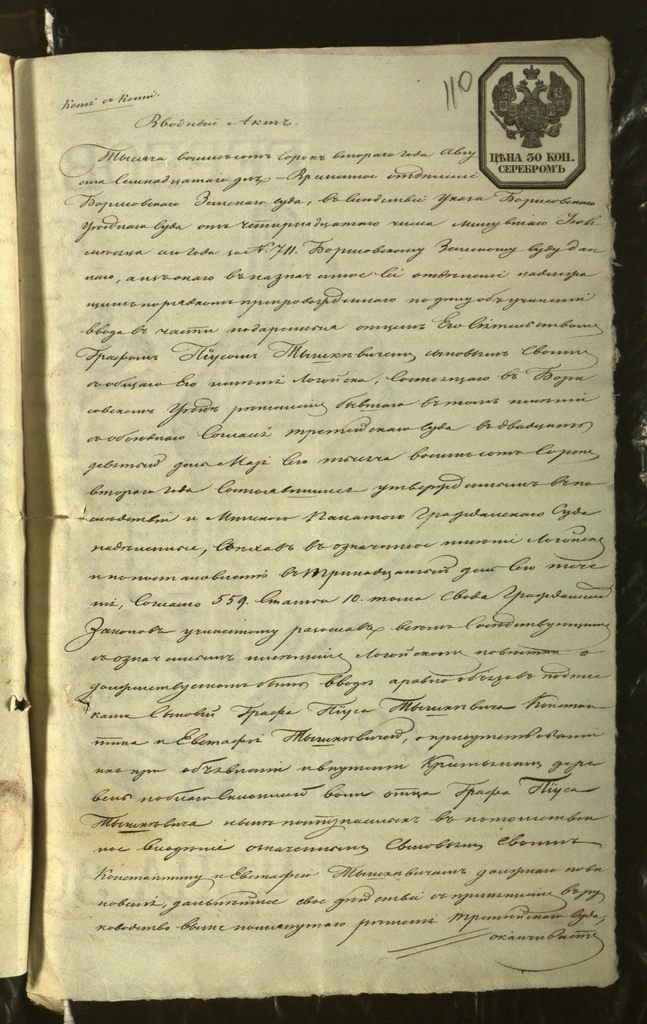 Копія съ Копіи.
110
ЦѢНА 30 КОП.
СЕРЕБРОМЪ
Вводный Актъ.
Тысяча восемьсотъ сорокъ втораго года Авгу
ста Семнадцатаго дня – Временное отдѣленіе
Борисовскаго Земскаго Суда, въ слѣдствіе Указа Борисовскаго
Уѣзднаго Суда отъ четырнадцатаго числа минувшаго Іюля
мѣсяца сего года за №. 711. Борисовскому Земскому Суду дан
наго, а изъ онаго въ назначенное сіе отдѣленіе надлежа
щимъ порядкомъ препровожденнаго по дѣлу объ учиненіи
ввода въ части подаренныя отцемъ Его Сіятельствомъ
Графомъ Піусомъ Тышкевичемъ сыновьямъ Своимъ
съ общаго Его имѣнія Логойска, состоящаго въ Бори
совскомъ Уѣздѣ рѣшеніемъ бывшаго въ томъ имѣніи
съ обоюднаго Согласія третейскаго Суда въ двадцать
девятый день Маія сего тысяча восемьсотъ Сорокъ
втораго года Состоявшимся утвержденнымъ въ по
слѣдствіи и Минскою Палатою Гражданскаго Суда
надѣленные, съѣхавъ въ означенное имѣніе Логойскъ
и по постановленію въ тринадцатый день сего тече
нія, Согласно 559. Статьи 10. тома Свода Гражданскихъ
Законовъ учиненному разославъ всѣмъ Сосѣдствующимъ
съ означеннымъ имѣніемъ Логойскомъ повѣстки о
долженствующемъ быть вводѣ а равно объявъ подпис
ками Сыновей Графа Піуса Тышкевича Констан
тина и Евстафія Тышкевичей, о присутствованіи
ихъ при объявленіи
вень по благо воли отца Графа Піуса
Тышкевича нынѣ поступаемыхъ въ потомствен
ное Владѣніе означеннымъ Сыновьямъ Своимъ
Константину и Евстафію Тышкевичамъ должнаго пови
новенія, дальнѣйшее свое дѣйствіе съ принятіемъ въ ру
ководство выше помянутаго рѣшенія Третейскаго Суда,
оканчиваетъ